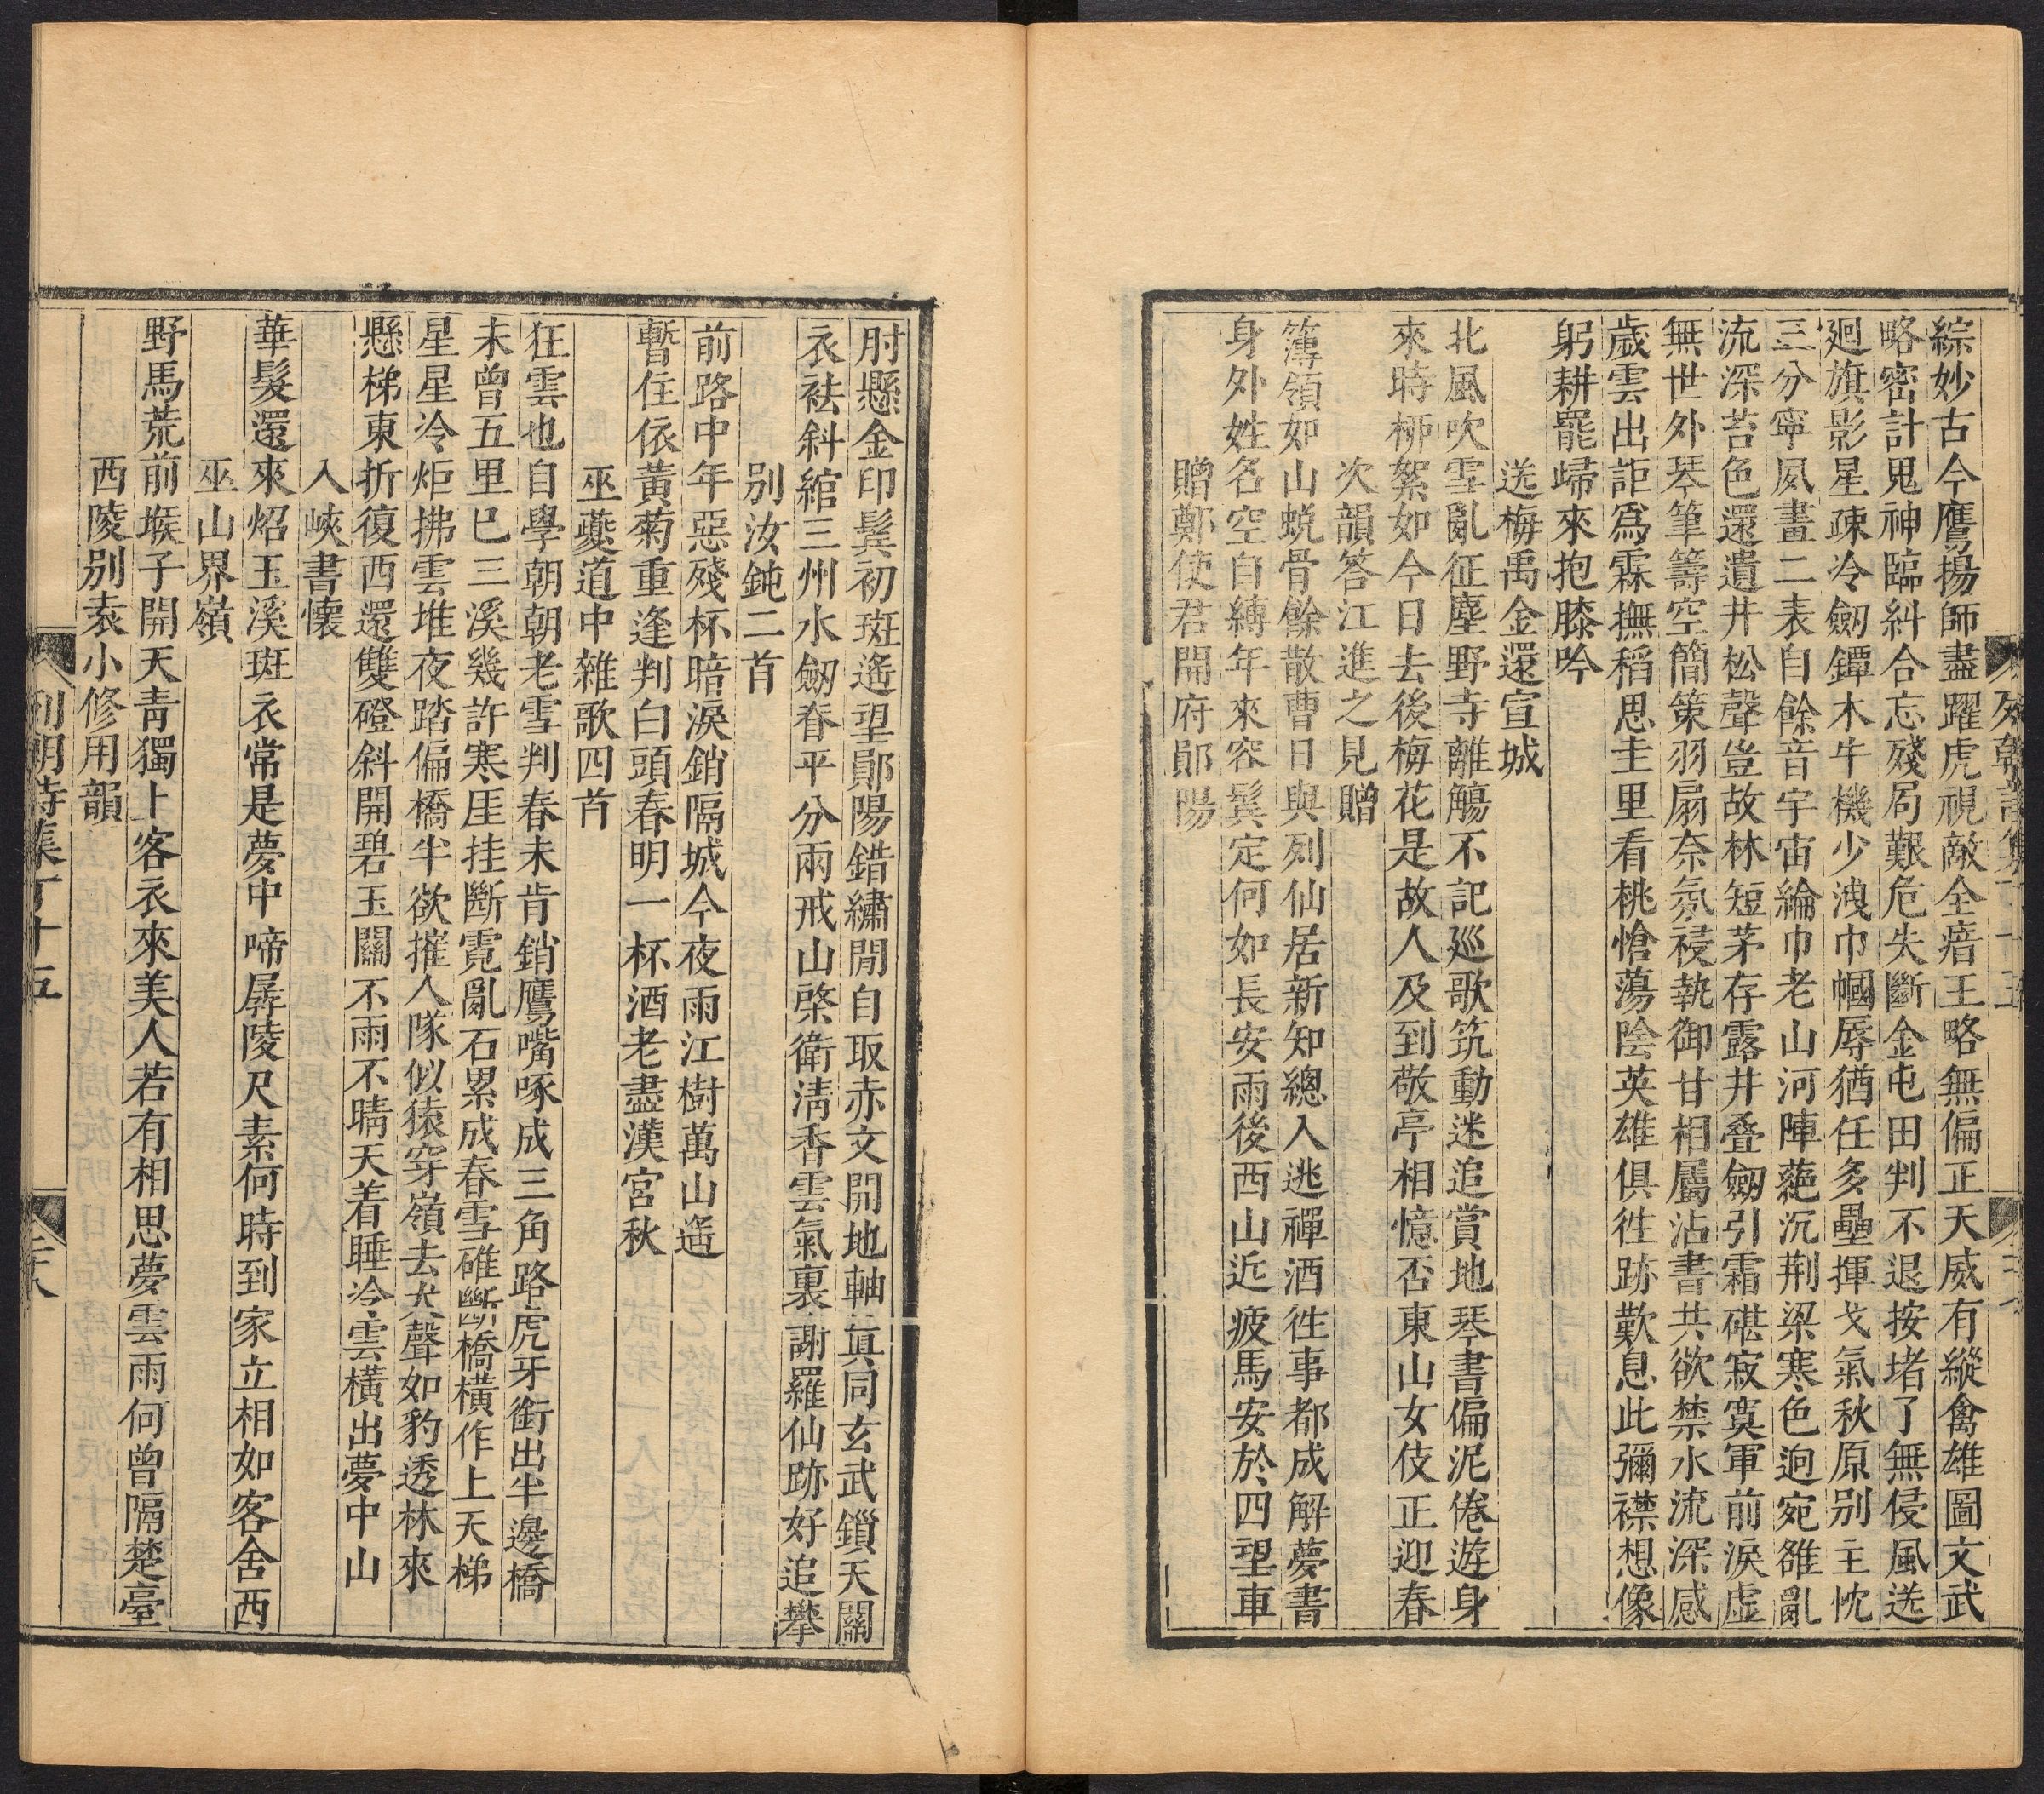 綜妙古今鷹揚師盡躍虎視敵全瘖王略無偏正天威有縱禽雄圖文武
略密計鬼神臨糾合忘殘局艱危失斷金屯田判不退按堵了無侵風送
廻旗影星疎冷劒鐔木牛機少洩巾幗辱猶任多壘揮戈氣秋原别主忱
三分寧夙畫二表自餘音宇宙綸巾老山河陣蕝沉荆梁寒色迥宛雒亂
流深苔色還遺井松聲豈故林短茅存露井叠劒引霜碪寂寞軍前淚虛
無世外琴筆籌空簡策羽扇奈氛祲執御甘相屬沾書共欲禁水流深感
歲雲出詎爲霖撫稻思圭里看桃愴蕩陰英雄俱徃跡歎息此彌襟想像
躬耕罷歸來抱膝吟
送梅禹金還宣城
北風吹雪亂征塵野寺離觴不記廵歌筑動迷追賞地琴書偏泥倦遊身
來時柳絮如今日去後梅花是故人及到敬亭相憶否東山女伎正迎春
次韻答江進之見贈
簿領如山蛻骨餘散曹日與列仙居新知總入逃禪酒徃事都成解夢書
身外姓名空自縛年來容鬂定何如長安雨後西山近疲馬安於四望車
贈鄭使君開府鄖陽
列朝詩集丁十五
肘懸金印鬂初斑遙望鄖陽錯繡閒自取赤文開地軸眞同玄武鎻天關
衣袪斜綰三州水劒春平分兩戒山棨衛清香雲氣裏謝羅仙跡好追攀
别汝鈍二首
前路中年惡殘杯暗淚銷隔城今夜雨江樹萬山遙
暫住依黃菊重逢判白頭春明一杯酒老盡漢宮秋
巫夔道中雜歌四首
狂雲也自學朝朝老雪判春未肯銷鷹嘴啄成三角路虎牙銜出半邊橋
未曾五里巳三溪幾許寒厓挂斷霓亂石累成春雪碓斷橋橫作上天梯
星星冷炬拂雲堆夜踏偏橋半欲摧人隊似猿穿嶺去犬聲如豹透林來
懸梯東折復西還雙磴斜開碧玉關不雨不晴天着睡冷雲橫出夢中山
入峽書懷
華髮還來炤玉溪斑衣常是夢中啼孱陵尺素何時到家立相如客舍西
巫山界嶺
野馬荒前堠子開天靑獨上客衣來美人若有相思夢雲雨何曾隔楚臺
西陵别袁小修用韻
列朝詩集丁十五